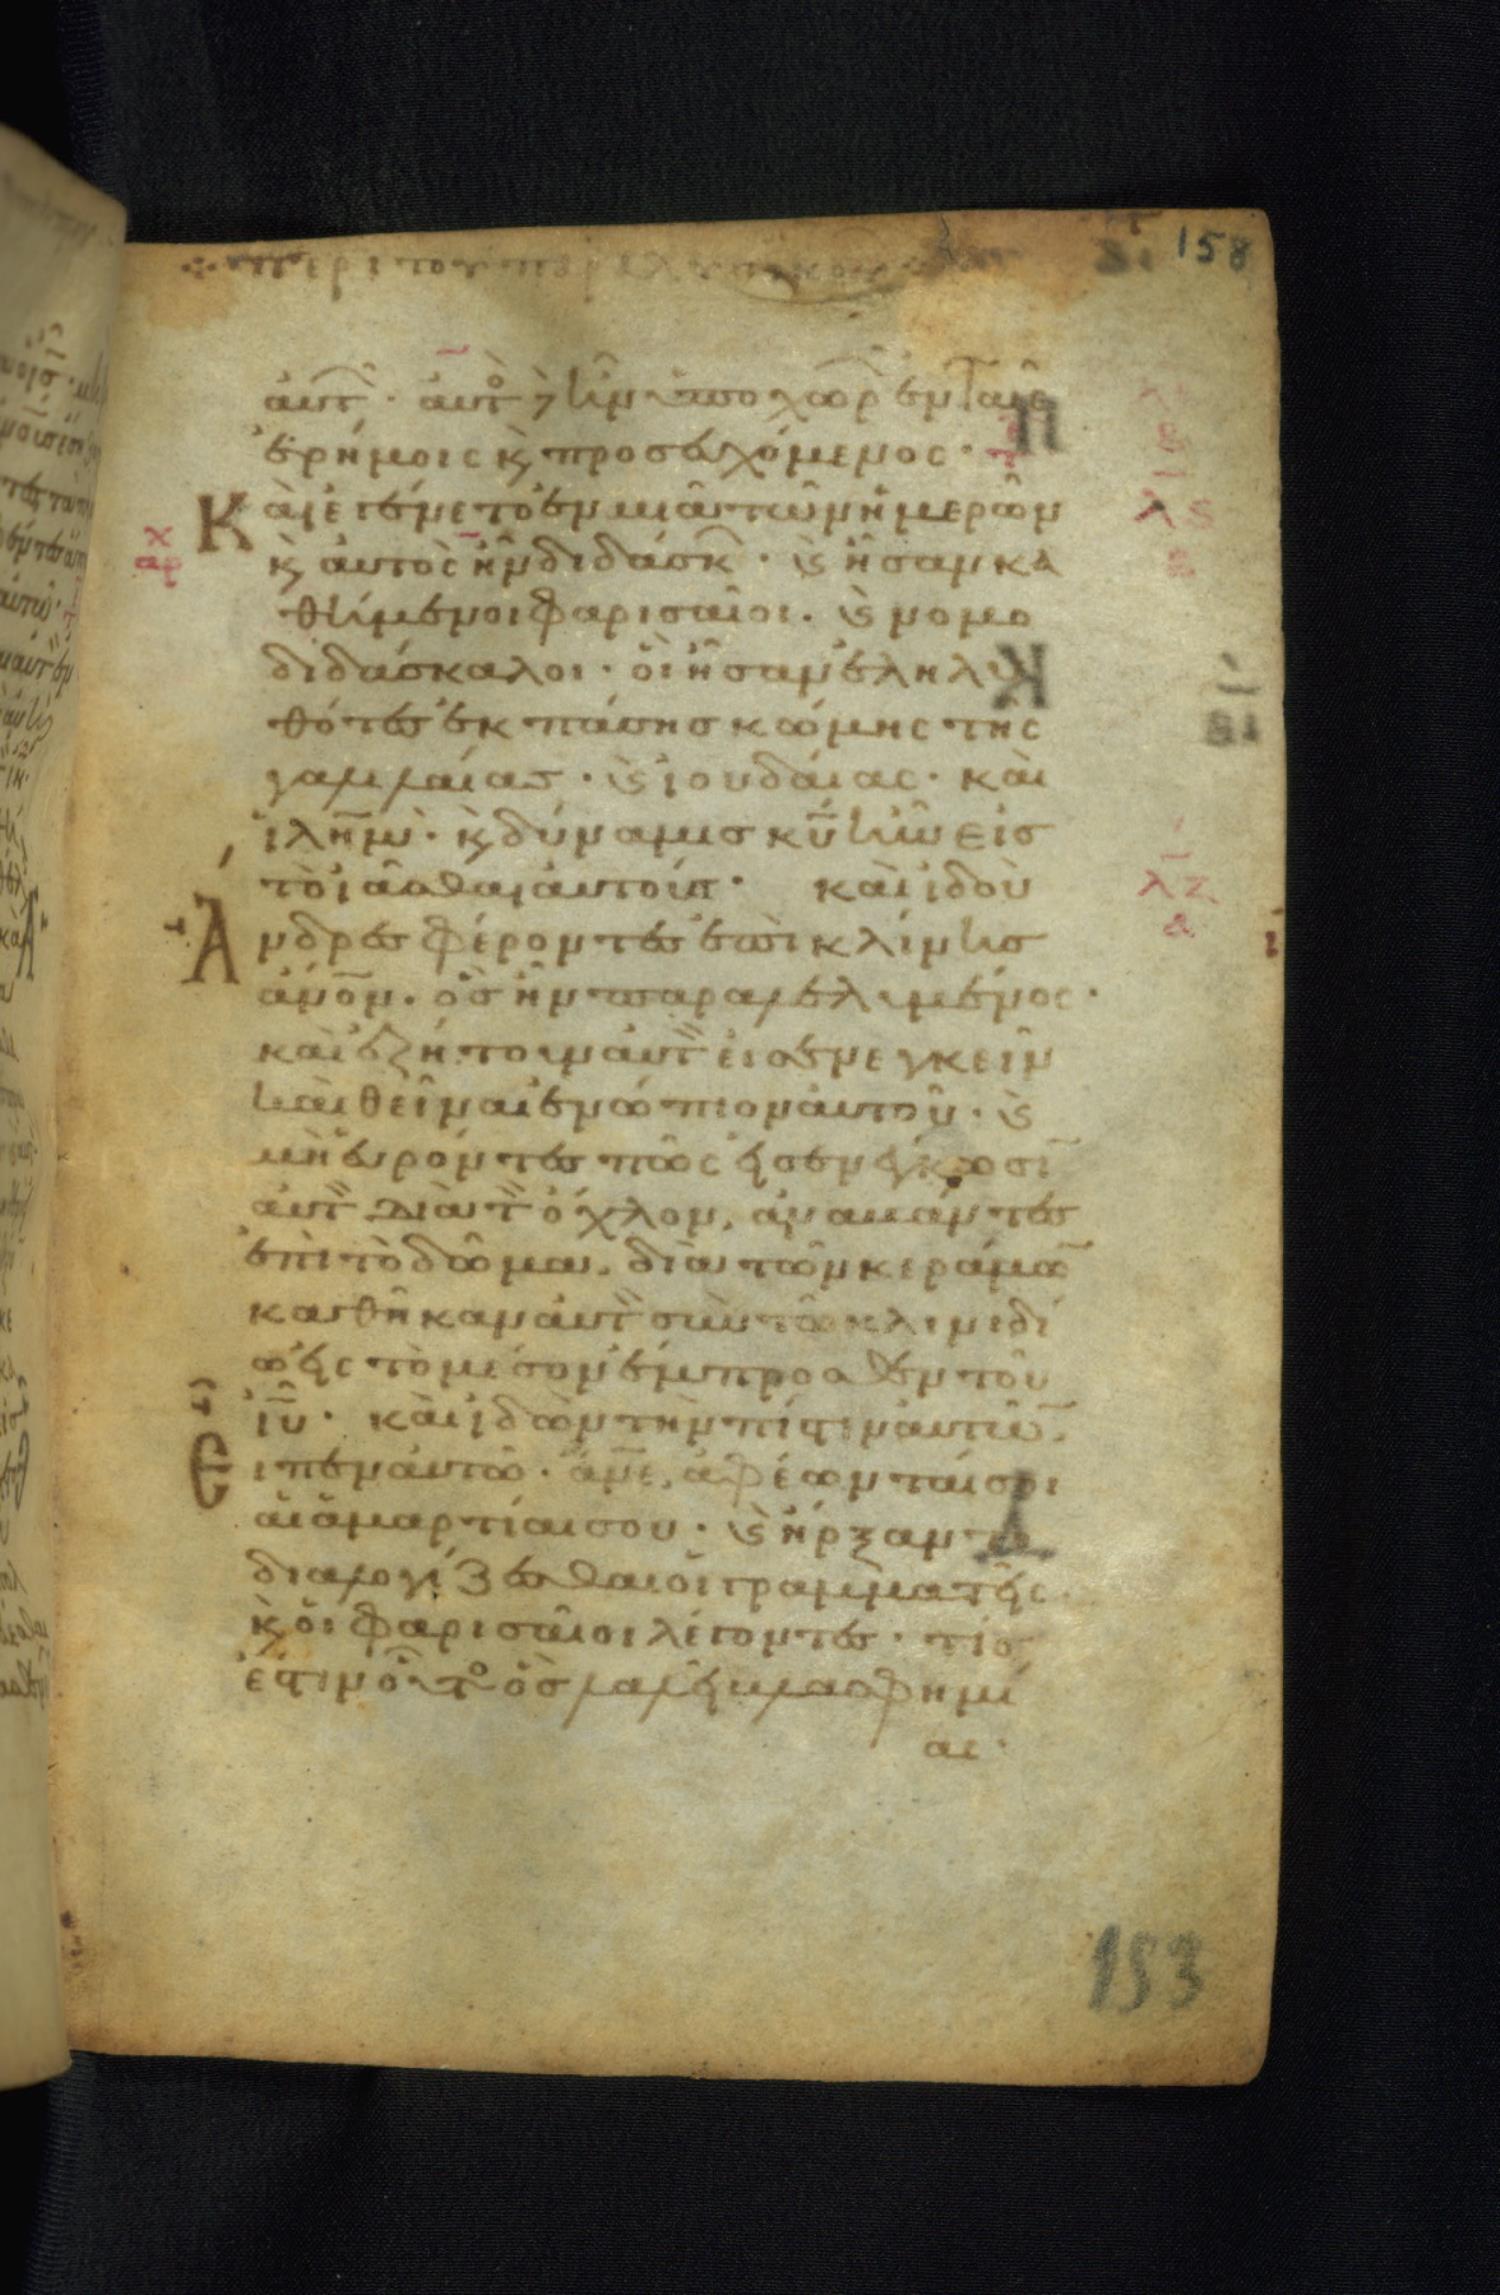 158
αὐτῶν· αὐτὸς δὲ ἦν ὑποχωρῶν ἐν ταῖς
ἐρήμοις κ̀ προσευχόμενος· τε
λς
Καὶ ἐγένετο ἐν μιᾷ τῶν ἡμερῶν
αρχ
κ̀ αὐτὸς ἦν διδάσκων· κ̀ ἦσαν κα
θήμενοι φαρισαῖοι· κ̀ νομο
διδάσκαλοι· οἳ ἦσαν ἐληλυ
θότες ἐκ πάσης κώμης τῆς
γαλιλαίας· κ̀ ἰουδαίας· καὶ
ἰλῆμ· κ̀ δύναμις κυ ἦν εἰς
τὸ ἰᾶσθαι αὐτούς· καὶ ἰδοὺ
λζ
Ἄνδρες φέροντες ἐπὶ κλίνης
ἄνον· ὃς ἦν παραλελυμένος·
καὶ ἐζήτουν αὐτὸν εἰσενεγκεῖν
καὶ θεῖναι ἐνώπιον αὐτοῦ· κ̀
μὴ εὑρόντες πῶς εἰσενέγκωσι
αὐτὸν διὰ τὸν ὄχλον, ἀναβάντες
ἐπὶ τὸ δῶμα, διὰ τῶν κεράμω̄
καθῆκαν αὐτὸν σὺν τῷ κλινιδί
ῳ εἰς τὸ μέσον ἔμπροσθεν τοῦ
ἰυ· καὶ ἰδὼν τὴν πίστιν αὐτῶ̄.
Εἶπεν αὐτῷ· ἄνε, ἀφέωνταί σοι
αἱ ἁμαρτίαι σου· κ̀ ἤρξαντο
διαλογίζεσθαι οἱ γραμματεῖς
κ̀ οἱ φαρισαῖοι λέγοντες· τίς
ἐστιν οὗτος ὃς λαλεῖ βλασφημί
ας·
153